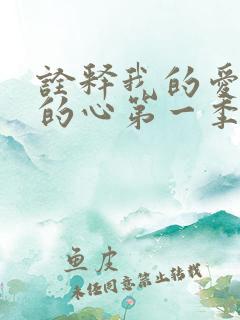 詮释我的愛
的心第一季
鱼皮
未经同意禁止转载